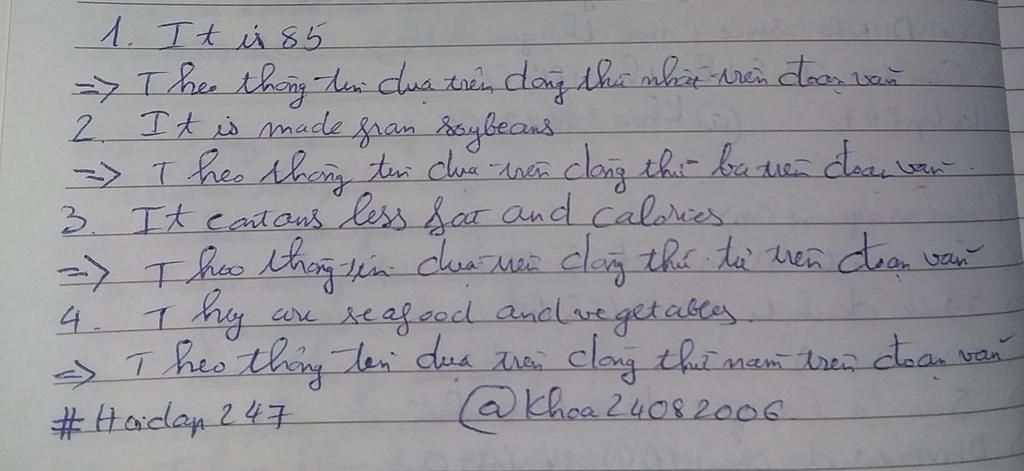 1. It is 85
=> Theo thông tin dựa trên dòng thứ nhất trên đoạn văn
2. It is made fran soybeans
=> Theo thông tin dựa trên dòng thứ ba trên đoạn văn.
3. It contans less fat and calories
=> Theo thông tin dựa trên dòng thứ tư trên đoạn văn
4. They are seafood and vegetables.
=> Theo thông tin dựa trên dòng thứ năm trên đoạn văn
#Hoidap247 @Khoa24082006